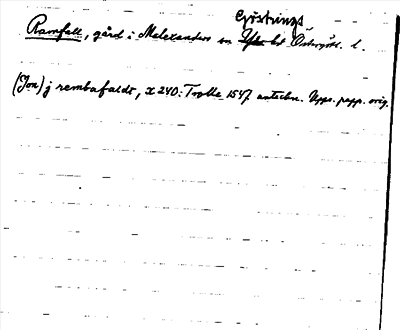 Göstrings
Ramfall, gård i Malexanders sn Ydre hd Östergötl. l.
(Jon) j rembafaldt, x 240: Trolle 1547 antecbn. Upps. papp. orig.